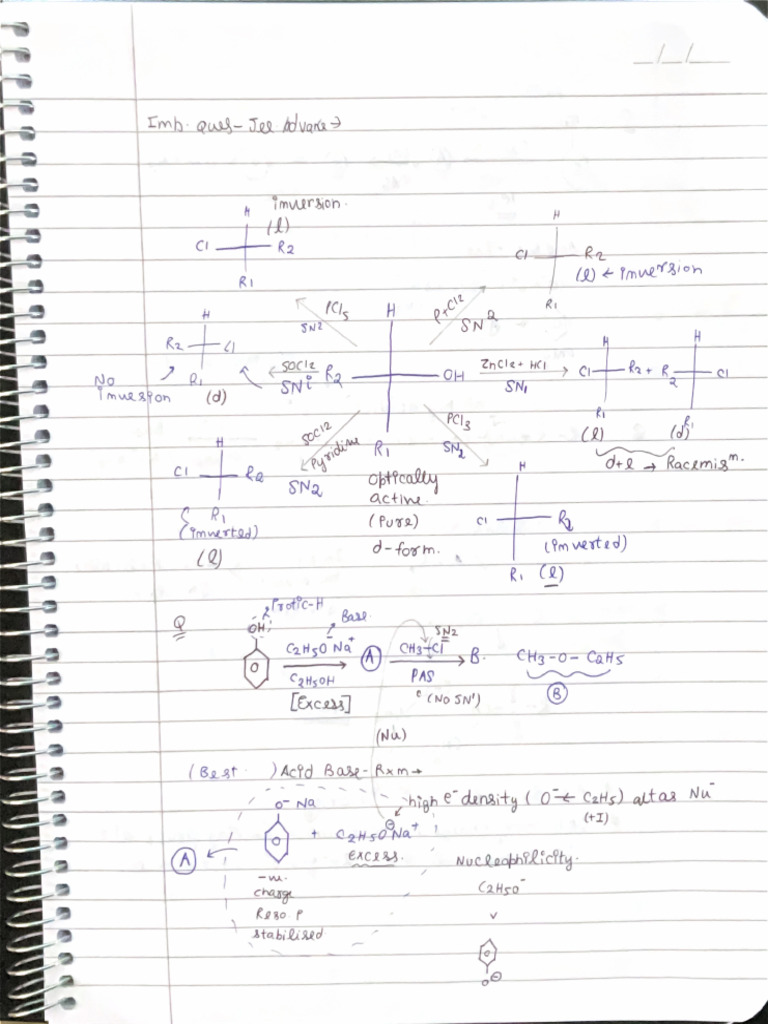 _/_/_
Imb. Ques- Jee Advance →
inversion.
(l)
H
Cl R2
R1
H
Cl R2
(l) ← inversion
R1
PCl5
SN2
P+Cl2
SN2
H
R2 Cl
R1
No inversion
(d)
SOCl2
SNi
H
R2 OH
R1
ZnCl2 + HCl
SN1
H
Cl R2
R1
(l)
+
H
R2 Cl
R1
(d)
d+l → Racemism.
SOCl2
Pyridine
SN2
PCl3
SN2
H
Cl R2
R1
(inverted)
(l)
optically
active.
(Pure)
d-form.
H
Cl R2
(inverted)
R1 (l)
Q
Protic-H
OH
Base
C2H5O⁻Na⁺
C2H5OH
[Excess]
A
SN2
CH3-Cl
PAS
(NO SN1)
B.
CH3-O-C2H5
B
(Nu)
(Best ) Acid Base-Rxn→
O⁻ Na
+ C2H5O⊖Na⁺
Excess.
high e⁻ density ( O⁻← C2H5) altas Nu⁻
(+I)
A
-ve.
charge
Reso P
stabilised
Nucleophilicity.
C2H5O⁻
v
O⊖